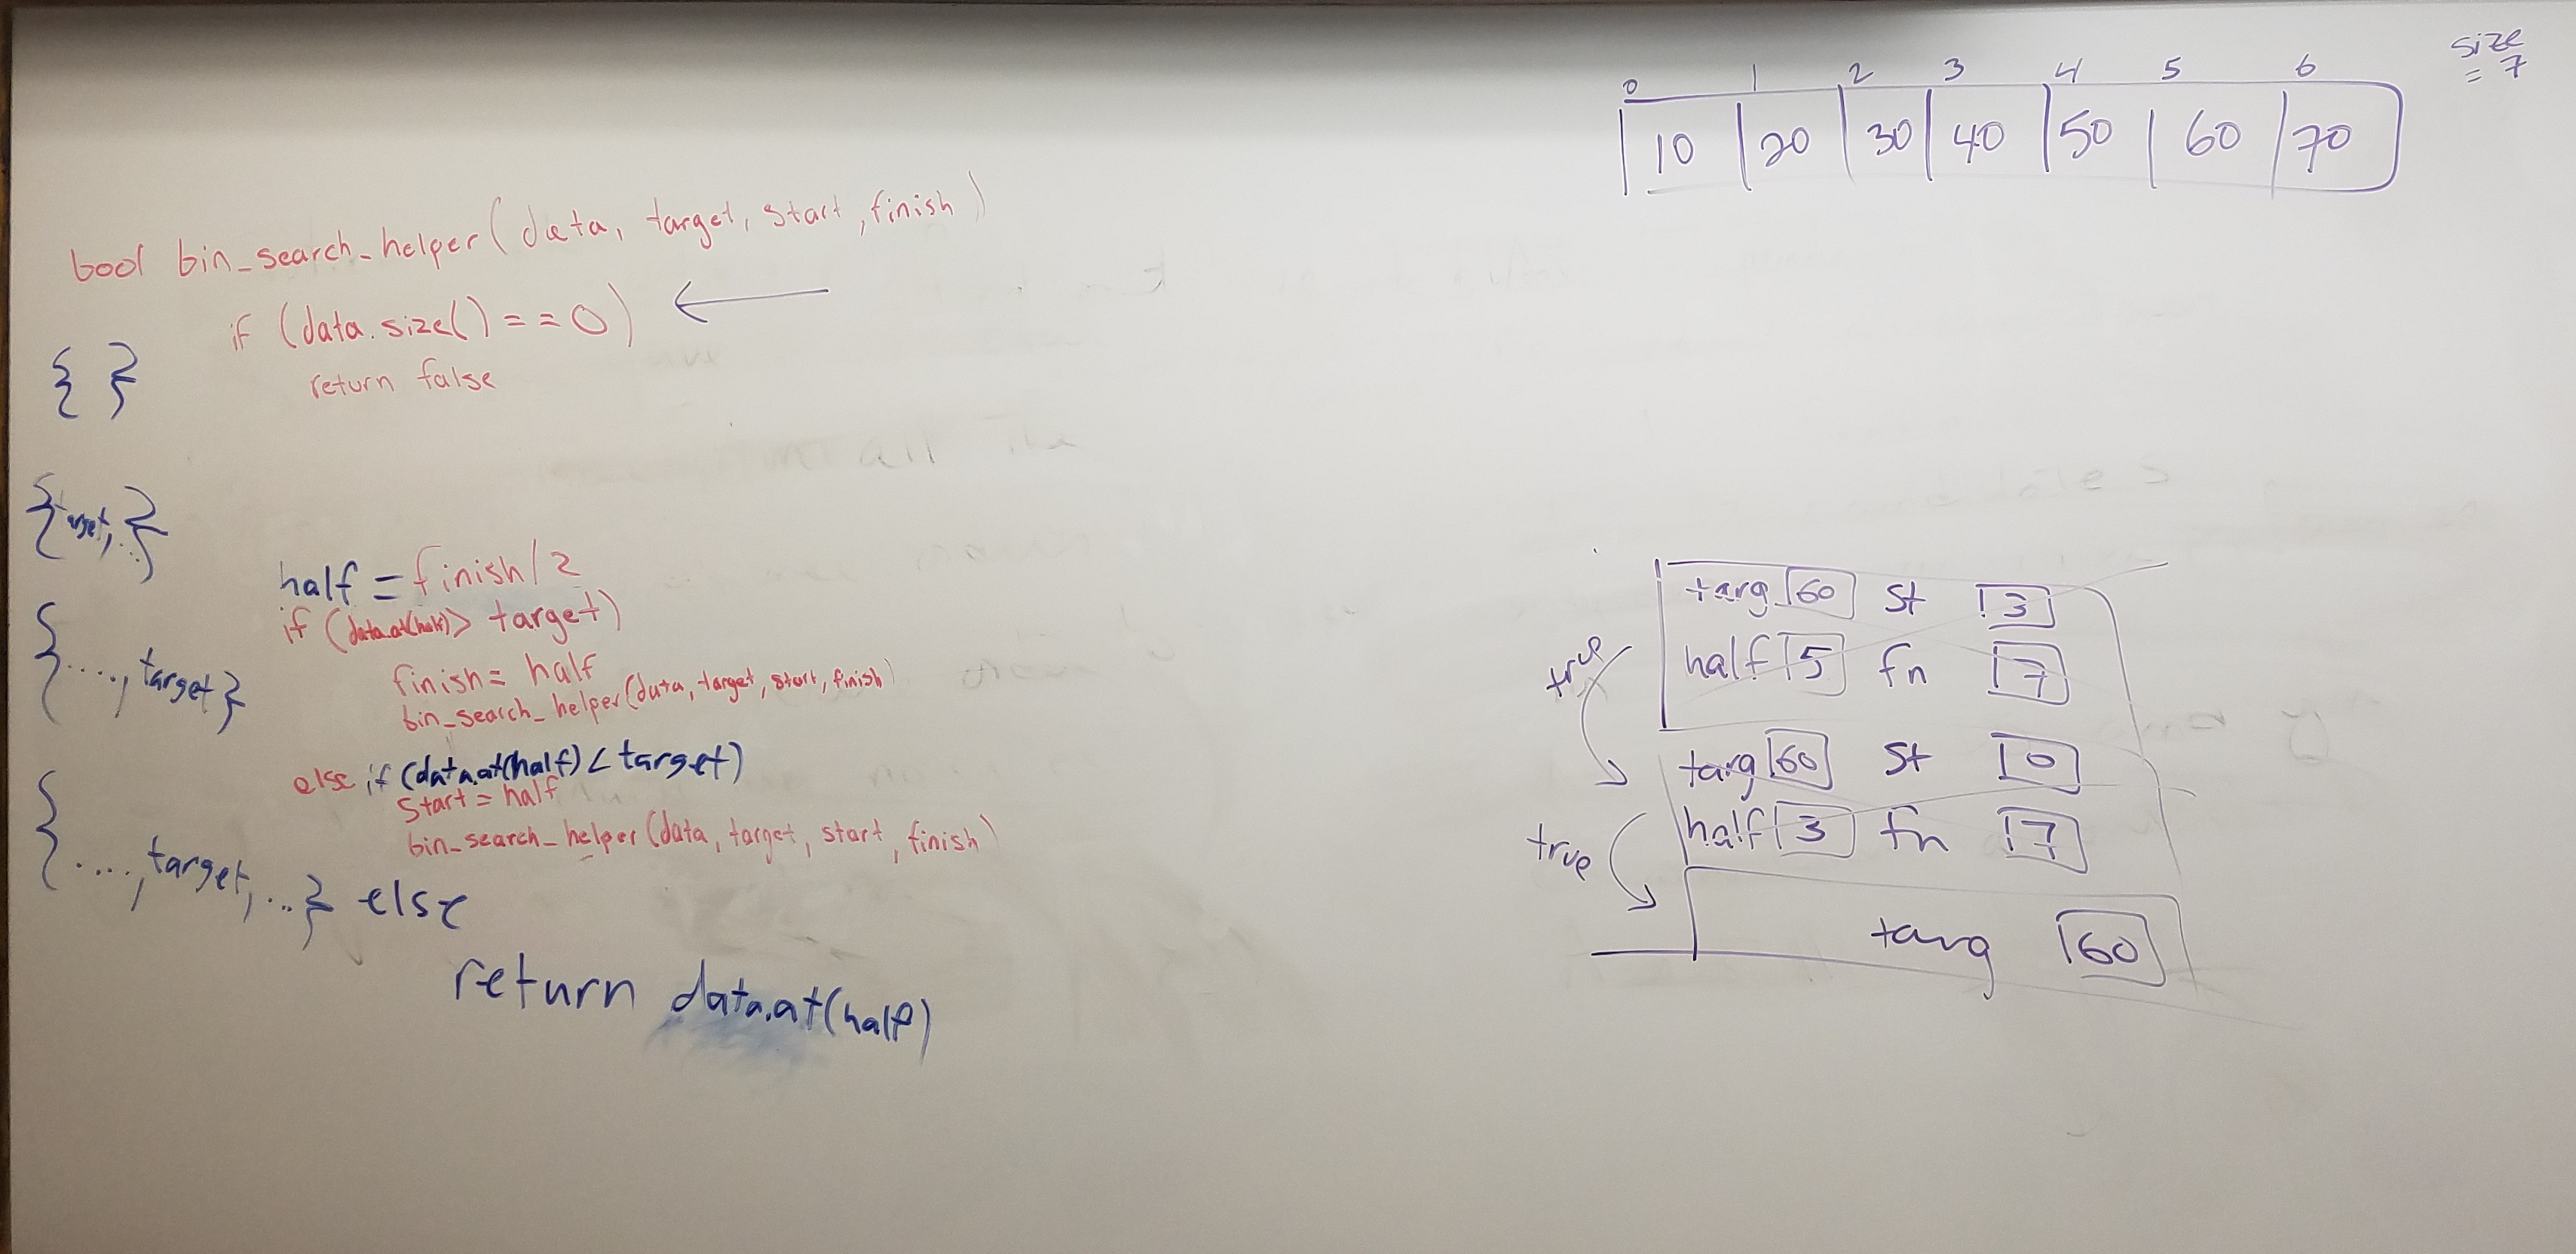 bool bin_search_helper(data, target, start, finish)
if (data.size() == 0) ←
return false
{ }
{target, ...}
half = finish/2
if (data.at(half) > target)
{ ...., target}
finish = half
bin_search_helper(data, target, start, finish)
else if (data.at(half) < target)
start = half
bin_search_helper(data, target, start, finish)
{ ...., target, ...}
else
return data.at(half)
size
= 7
0 1 2 3 4 5 6
10 20 30 40 50 60 70
targ 60 st 3
half 5 fn 7
true
targ 60 st 0
half 3 fn 7
true
targ 60